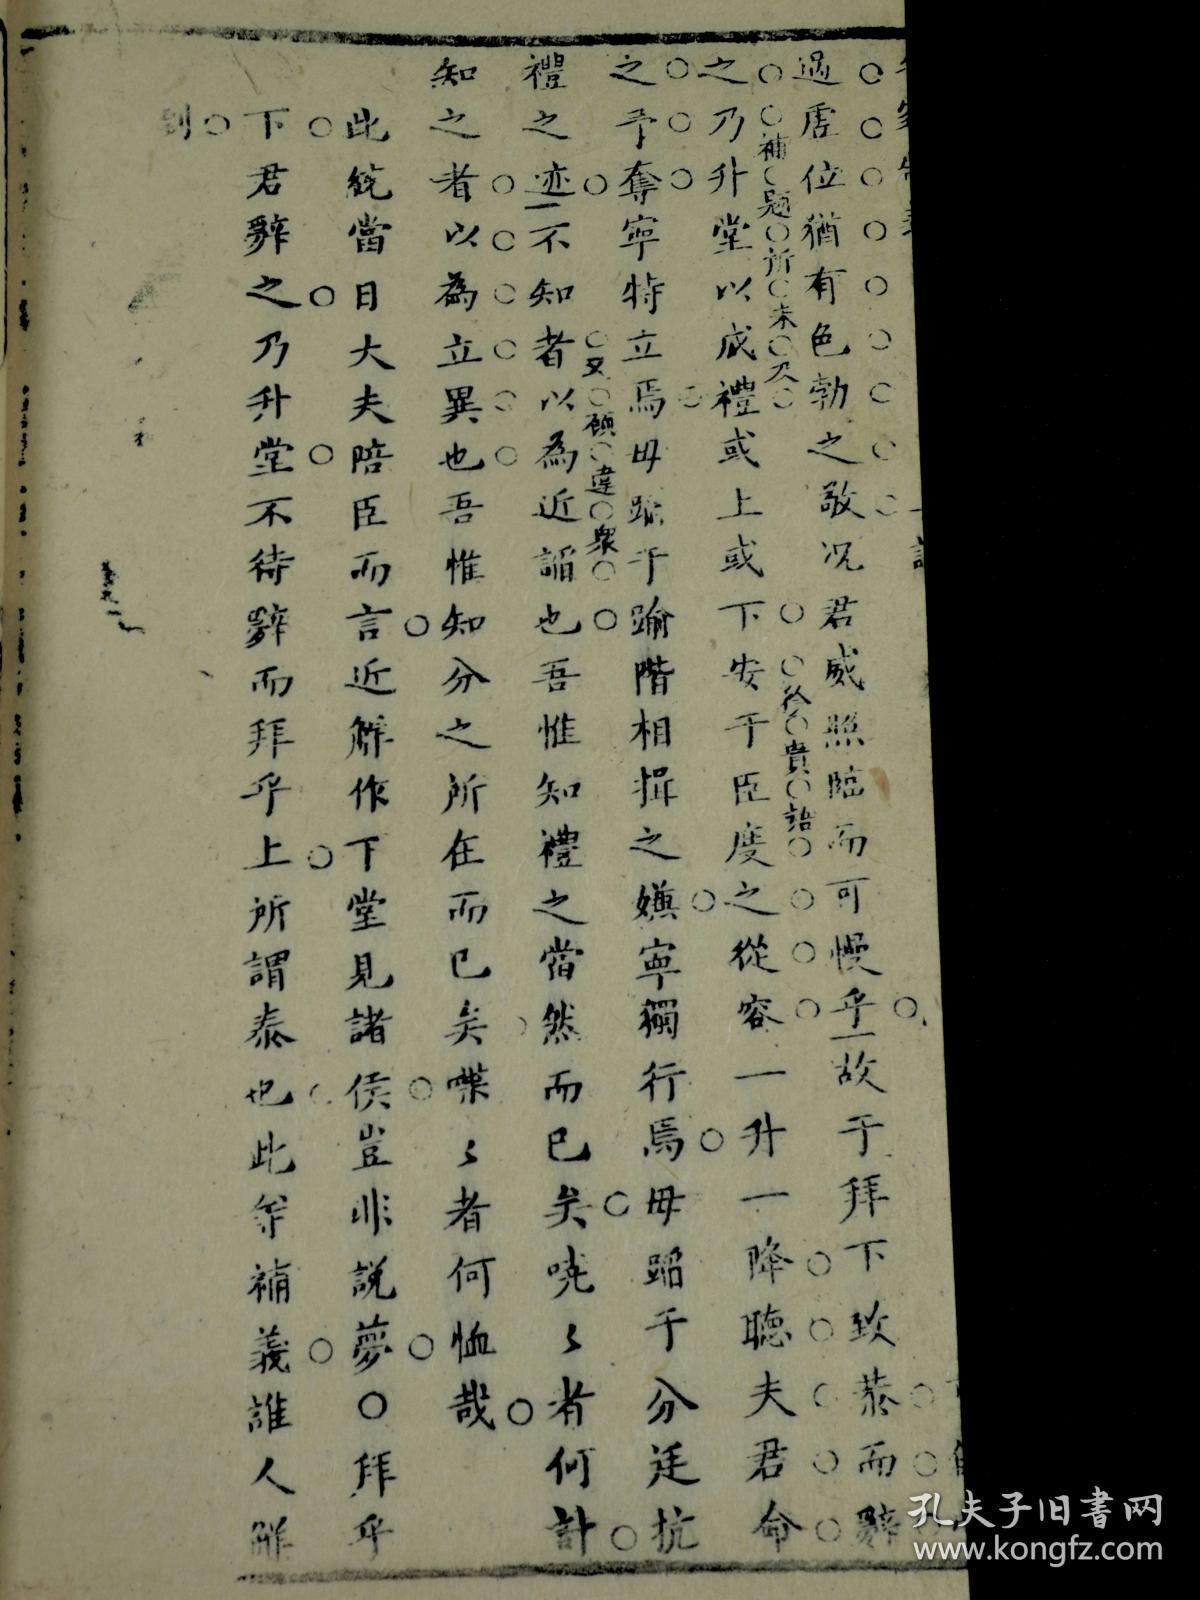 過虛位猶有色勃之敬况君威照臨而可慢乎故于拜下致恭而辭
之乃升堂以成禮或上或下安于臣度之從容一升一降聽夫君命
補題所未及
之予奪寧特立焉毋蹈于踰階相揖之嫌寧獨行焉毋蹈于分廷抗
禮之迹不知者以為近諂也吾惟知禮之當然而已矣嘵〻者何計
違眾
知之者以為立異也吾惟知分之所在而已矣喋〻者何恤哉
此統當日大夫陪臣而言近解作下堂見諸侯豈非説夢〇拜乎
下君辭之乃升堂不待辭而拜乎上所謂泰也此等補義誰人解
到
孔夫子旧書网
www.kongfz.com